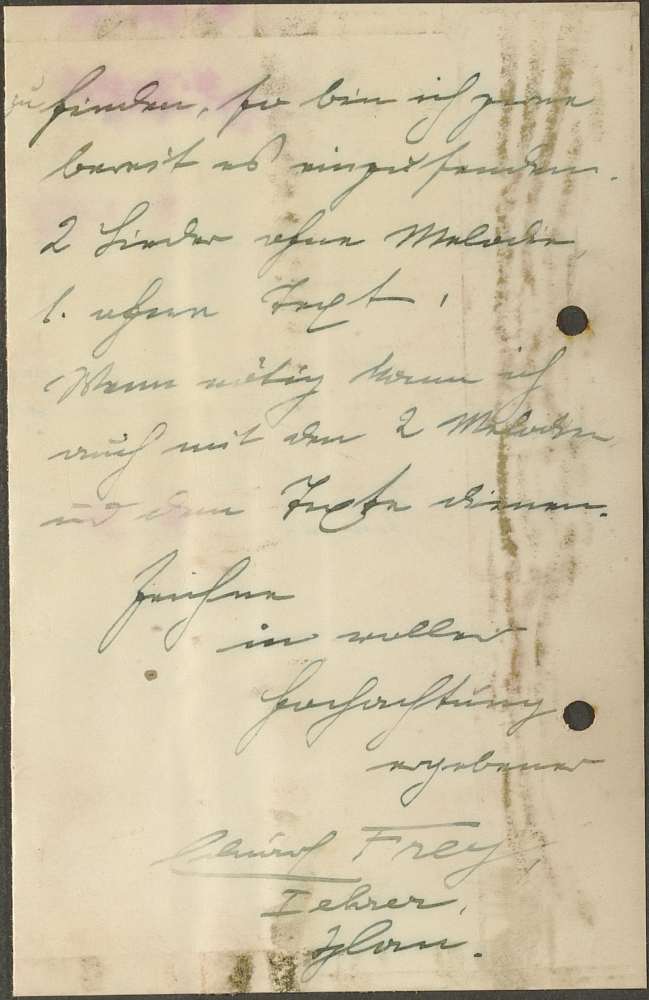 zu finden, so bin ich gerne
bereit es einzusenden.
2 Lieder ohne Melodie,
1. ohne Text.
Wenn nötig kann ich
auch mit den 2 Melodien
und dem Texte dienen.
Zeichne
in voller
Hochachtung
ergebener
Frey,
Lehrer,